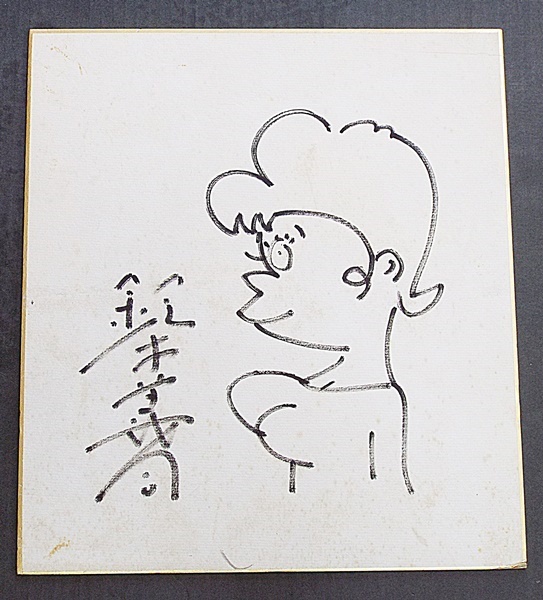 鈴木義司